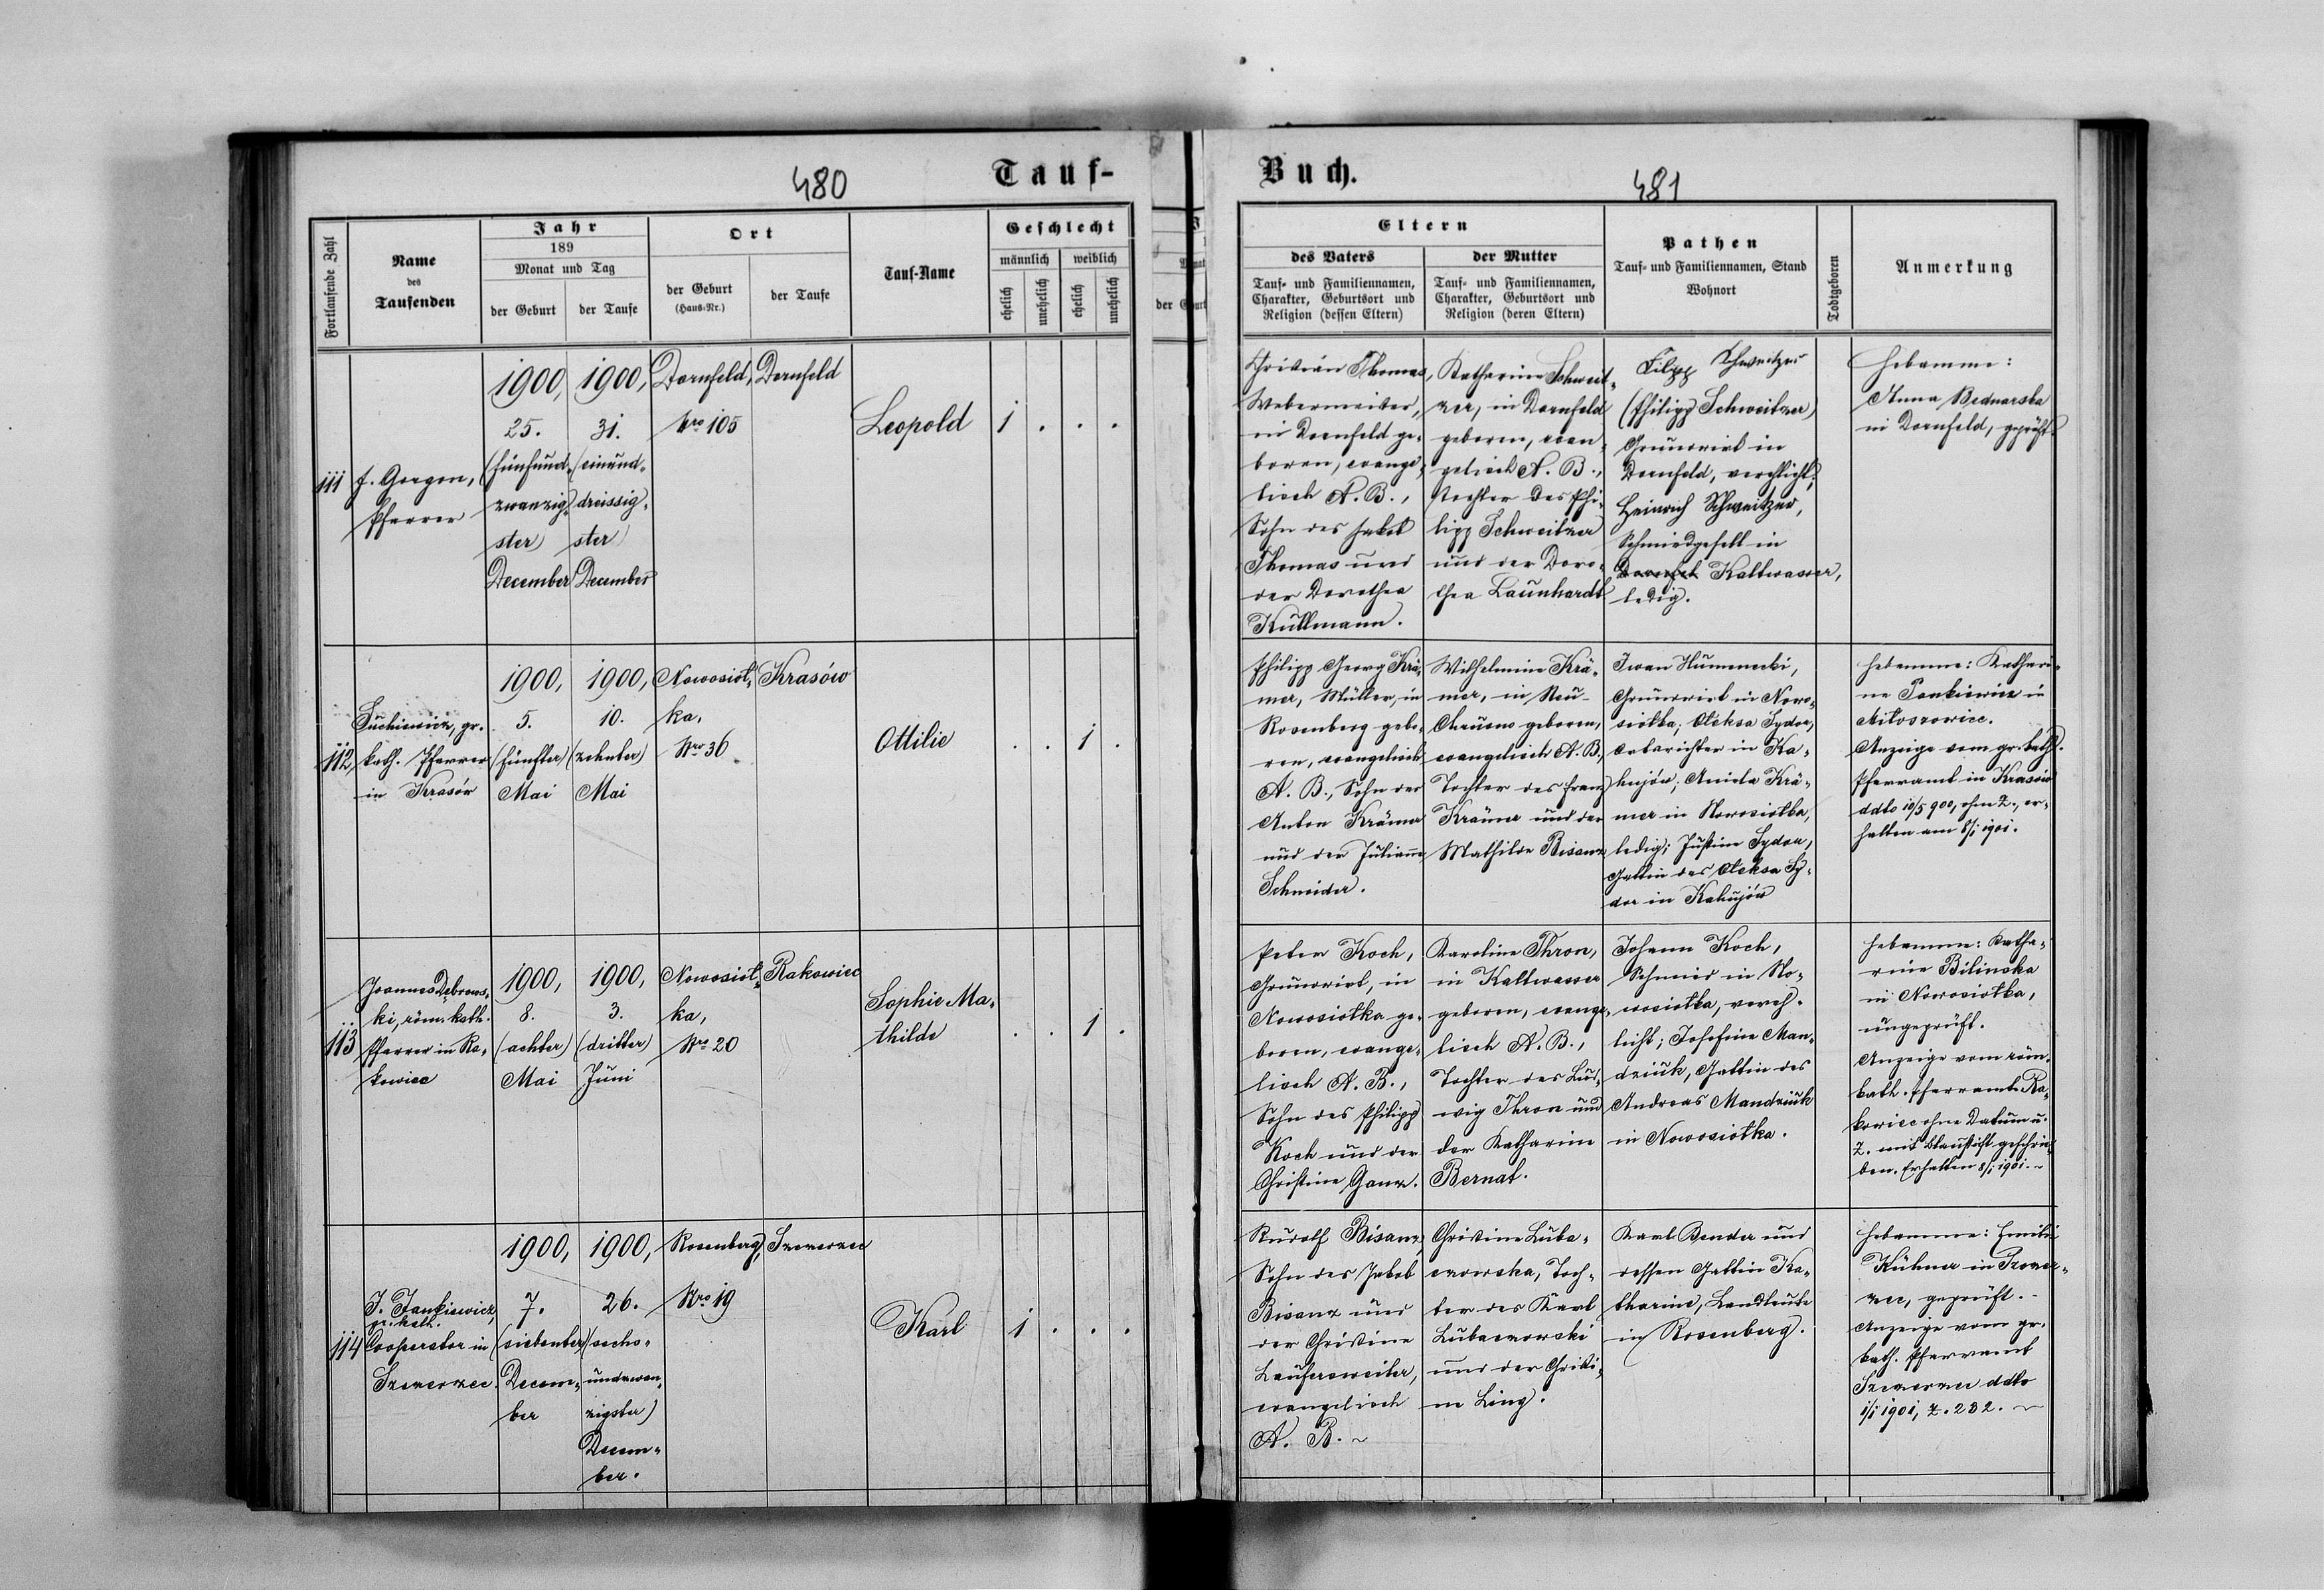 480
Tauf-
Fortlaufende Zahl
Name
des
Taufenden
Jahr
189
Monat und Tag
der Geburt
der Taufe
Ort
der Geburt
(Haus-Nr.)
der Taufe
Tauf-Name
Geschlecht
männlich
weiblich
ehelich
unehelich
ehelich
unehelich
111
Pfarrer
1900,
25.
(fünfund-
zwanzig-
ster)
December
1900,
31.
(einund-
dreissig-
ster)
December
Dornfeld,
Nro 105
Dornfeld
Leopold
1 . . .
112
kath. Pfarrer
in Krasów
1900,
5.
(fünfter)
Mai
1900,
10.
(zehnter)
Mai
Nowosioł-
ka,
Nro 36
Krasów
Ottilie
. . 1 .
113
Joannes Debrows-
ki, röm. kath.
Pfarrer in Ra-
kowiec
1900,
8.
(achter)
Mai
1900,
3.
(dritter)
Juni
Nowosioł-
ka,
Nro 20
Rakowiec
Sophie Ma-
thilde
. . 1 .
114
J. Jankiewicz,
gr. kath.
Cooperator in
Szczerzec.
1900,
7.
(siebenter)
Decem-
ber
1900,
26.
(sechs-
undzwan-
zigster)
Decem-
ber.
Rosenberg,
Nro 19
Szczerzec
Karl
1 . . .
Buch.
481
Eltern
des Vaters
Tauf- und Familiennamen,
Charakter, Geburtsort und
Religion (dessen Eltern)
der Mutter
Tauf- und Familiennamen,
Charakter, Geburtsort und
Religion (deren Eltern)
Pathen
Tauf- und Familiennamen, Stand
Wohnort
Todtgeboren
Anmerkung
Christian Thomas,
Webermeister,
in Dornfeld ge-
boren, evange-
lisch A. B.,
Sohn des Jakob
Thomas und
der Dorothea
Kullmann.
Katharina Schweit-
zer, in Dornfeld
geboren, evan-
gelisch A. B.,
Tochter des Phi-
lipp Schweitzer
und der Doro-
thea Launhardt
Filipp Schweitzer
(Philipp Schweitzer)
Grundwirt in
Dornfeld, verehlicht;
Heinrich Schweitzer,
Schmiedgesell in
Dornfel Kaltwasser,
ledig.
Hebamme:
Anna Bednarska
in Dornfeld, geprüft.
Philipp Georg Krä-
mer, Müller, in
Rosenberg gebo-
ren, evangelisch
A. B., Sohn des
Anton Krämer
und der Julianna
Schneider.
Wilhelmine Krä-
mer, in Neu-
Chrusno geboren,
evangelisch A. B.,
Tochter des Franz
Krämer und der
Mathilde Bisanz
Iwan Humenecki,
Grundwirt in Nowo-
siołka; Oleksa Sydor,
Ortsrichter in Ka-
hujów; Aniela Krä-
mer in Nowosiołka,
ledig; Justine Sydor,
Gattin des Oleksa Sy-
dor in Kahujów
Hebamme: Kathari-
ne Pankiewicz in
Miłoszowice.
Anzeige vom gr. kath.
Pfarramt in Krasów
ddto 10/5 900, ohne Z., er-
halten am 8/1 1901.
Peter Koch,
Grundwirt, in
Nowosiołka ge-
boren, evange-
lisch A. B.,
Sohn des Philipp
Koch und der
Christine Ganz.
Karoline Thron,
in Kaltwasser
geboren, evange-
lisch A. B.,
Tochter des Lud-
wig Thron und
der Katharina
Bernat.
Johann Koch,
Schmied in No-
wosiołka, vereh-
licht; Josefine Man-
dziuk, Gattin des
Andreas Mandziuk
in Nowosiołka.
Hebamme: Katha-
rine Bilinska
in Nowosiołka,
ungeprüft.
Anzeige vom röm.
kath. Pfarramte Ra-
kowiec ohne Datum u.
Z. mit Blaustift geschrie-
ben. Erhalten 8/1 1901.
Rudolf Bisanz,
Sohn des Jakob
Bisanz und
der Christine
Laufersweiler,
evangelisch
A. B.
Christine Luba-
czowska, Toch-
ter des Karl
Lubaczowski
und der Christi-
ne Linz.
Karl Bender und
dessen Gattin Ka-
tharina, Landleute
in Rosenberg.
Hebamme: Emilie
Kühner in Szczer-
zec, geprüft.
Anzeige vom gr.
kath. Pfarramt
Szczerzec ddto
1/1 1901, Z. 282.